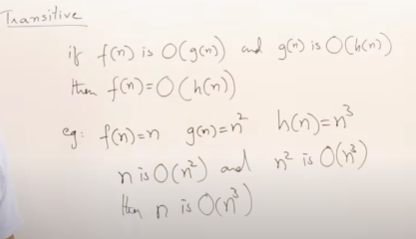 Transitive
if f(n) is O(g(n)) and g(n) is O(h(n))
then f(n)=O(h(n))
eg: f(n)=n g(n)=n² h(n)=n³
n is O(n²) and n² is O(n³)
then n is O(n³)